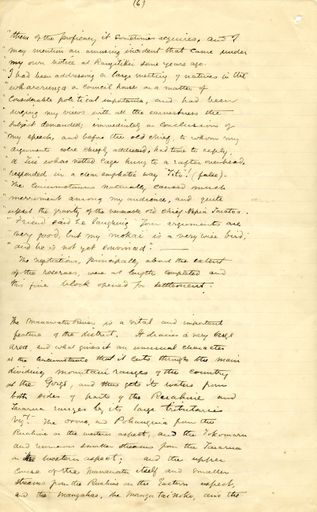 (6)
"them of the proficiency it sometimes acquires, and I
"may mention an amusing incident that came under
"my own notice at Rangitikei some years ago.
"I had been addressing a large meeting of natives in the
"wharerunga a council house on a matter of
"considerable political importance, and had been
"urging my views with all the earnestness the
"subject demanded; immediately on conclusion of
"my speech, and before the old chief, to whom my
"arguments were chiefly addressed, had time to reply,
"a Tui whose netted cage hung to a rafter overhead,
"responded in a clear emphatic way 'Tito'! (false).
"The circumstance naturally caused much
"merriment among my audience, and quite
"upset the gravity of the venerable old chief Nepia Taratoa.
"'Friend' said he laughing 'your arguments are
"very good, but my mokai is a very wise bird
"and he is not yet convinced'!
The negotiations, principally about the extent
of the reserves, were at length completed and
this fine block opened for settlement.
The Manawatu River is a vital and important
feature of the district. It drains a very large
area and what gives it an unusual character
is the circumstance that it cuts through the main
dividing mountain ranges of the country
at the Gorge, and thus gets its waters from
both sides of parts of the Ruahine and
Tararua ranges by its large tributaries
viz. The Oroua, and Pohangina from the
Ruahine on the western aspect, and the Tokomaru
and numerous smaller streams from the Tararua
on the western aspect; and the upper
course of the Manawatu itself and smaller
streams from the Ruahine on the Eastern aspect,
and the Mangahao, the Mangatainoka, and the